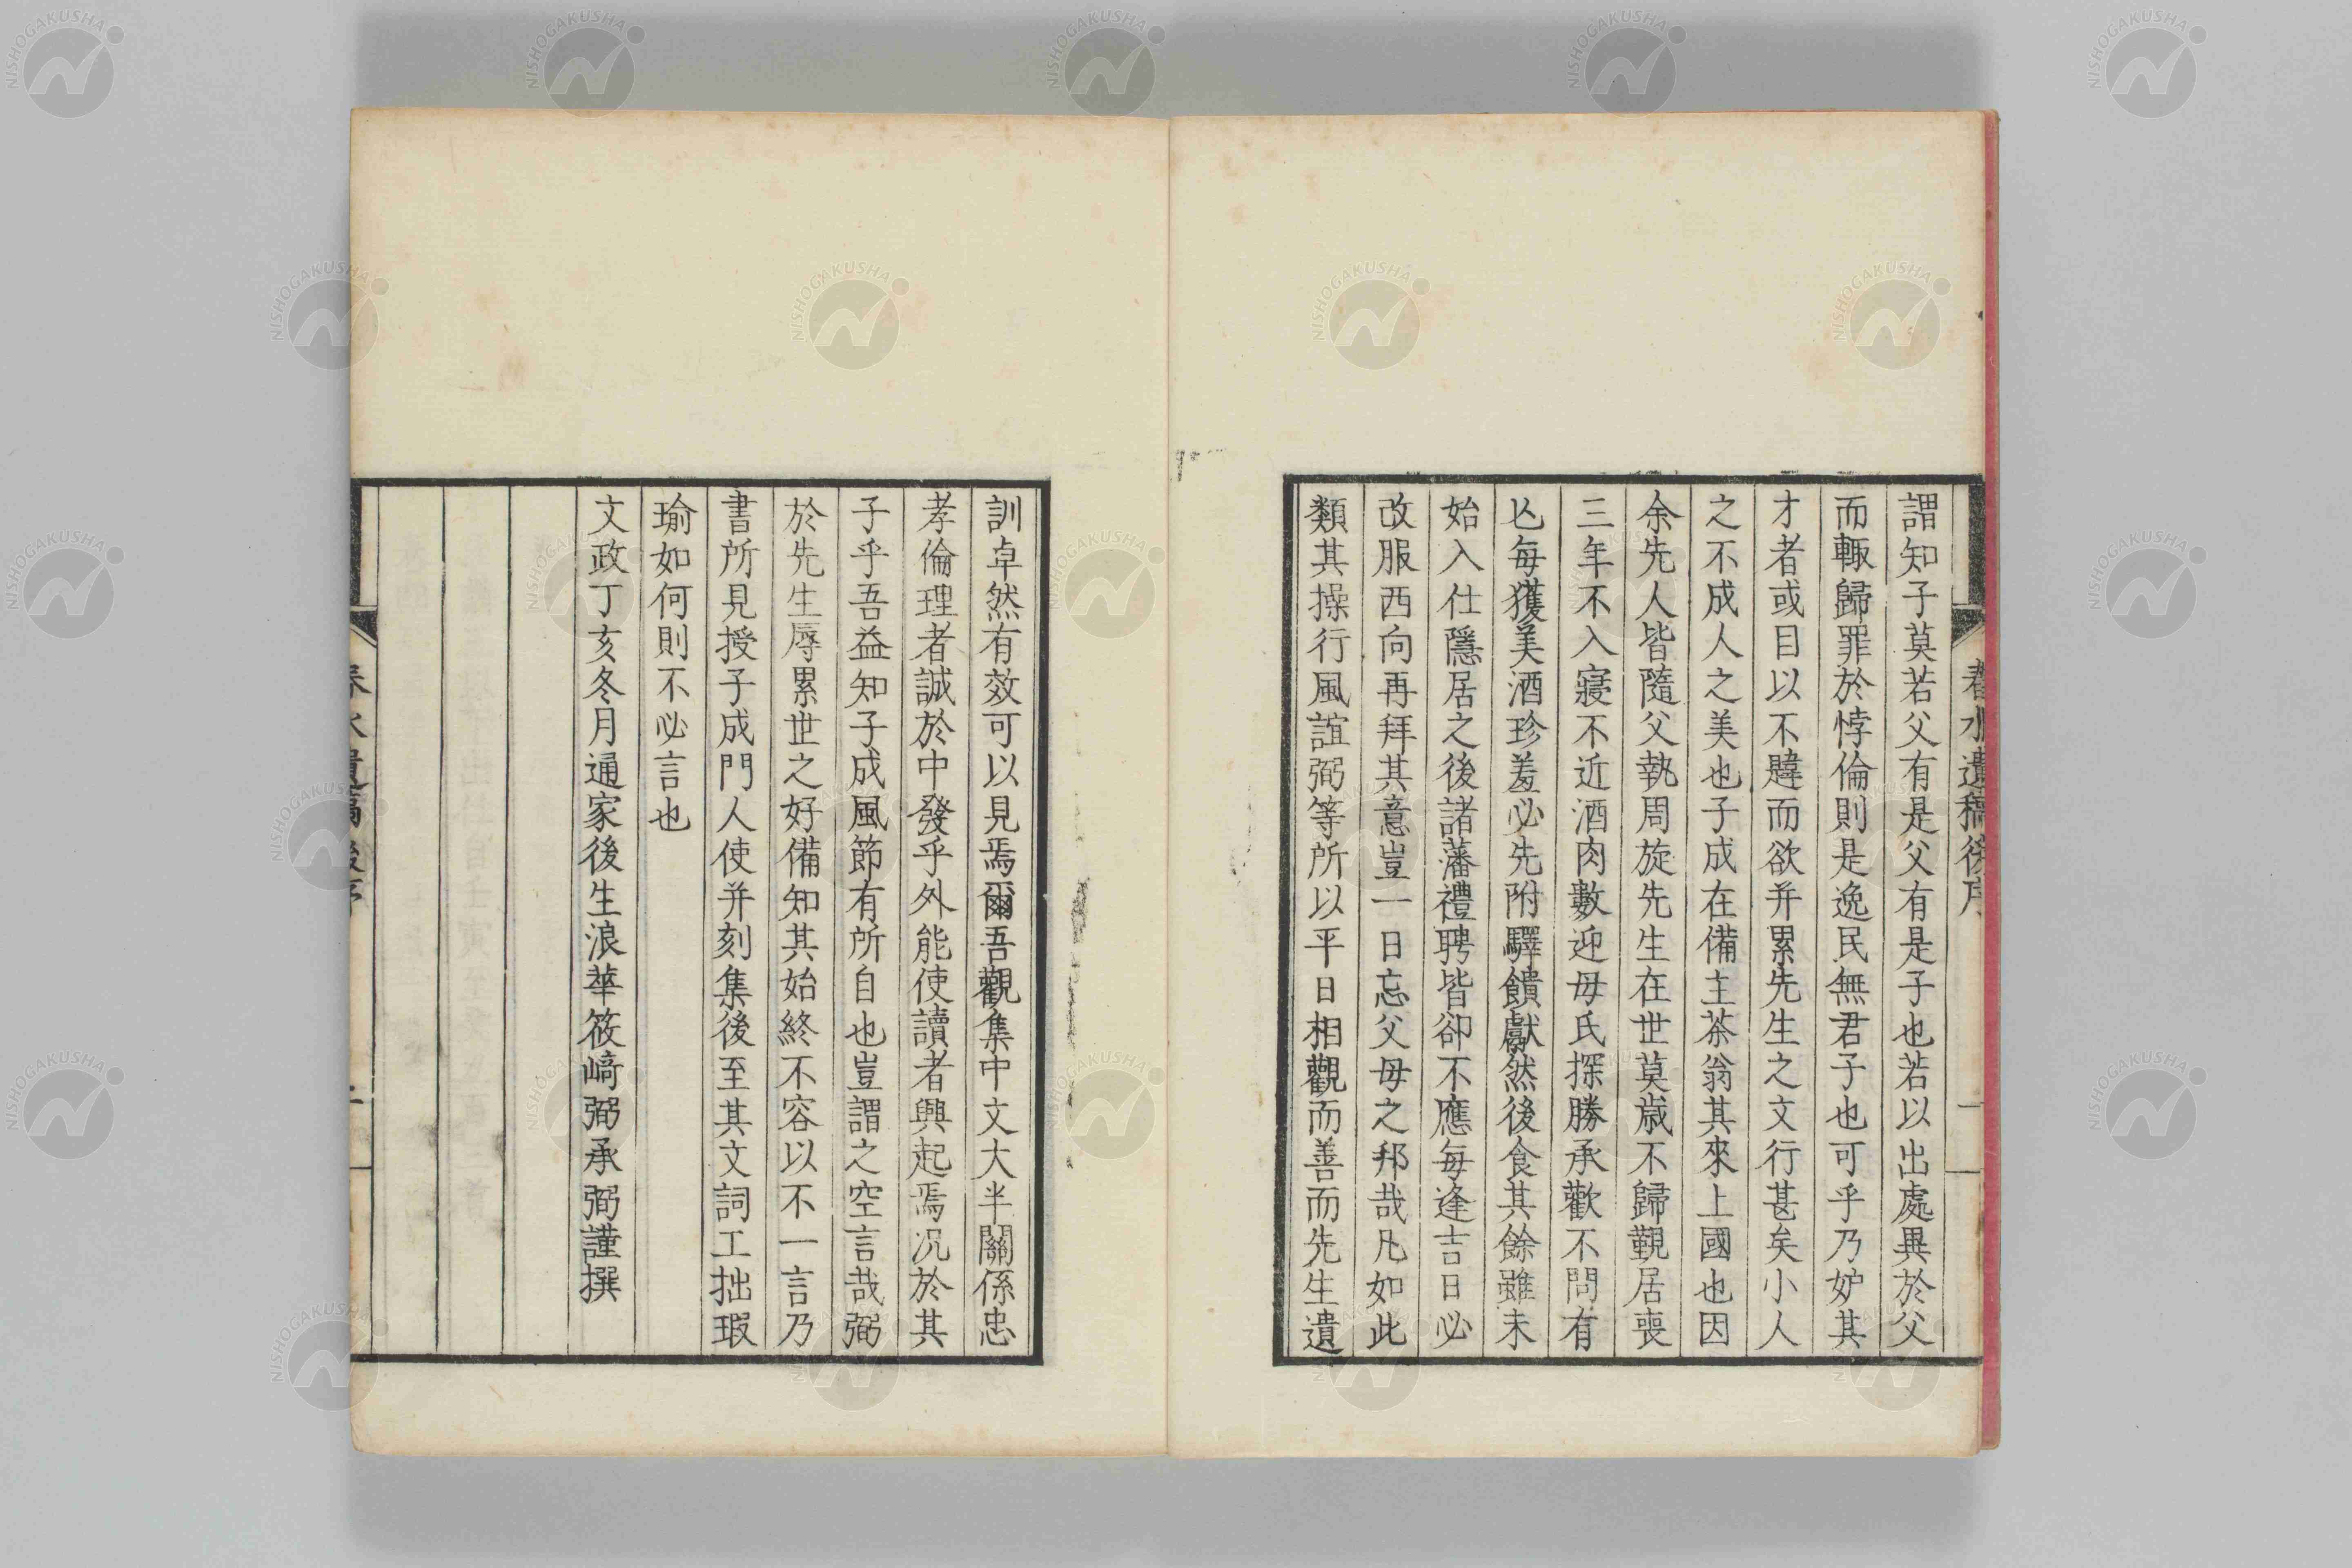 春水遺稿後序
謂知子莫若父有是父有是子也若以出處異於父
而輙歸罪於悖倫則是逸民無君子也可乎乃妒其
才者或目以不韙而欲并累先生之文行甚矣小人
之不成人之美也子成在備主茶翁其來上國也因
余先人皆隨父執周旋先生在世莫歲不歸覲居喪
三年不入寢不近酒肉數迎母氏探勝承歡不問有
亡每獲美酒珍羞必先附驛饋獻然後食其餘雖未
始入仕隱居之後諸藩禮聘皆卻不應每逢吉日必
改服西向再拜其意豈一日忘父母之邦哉凡如此
類其操行風誼弼等所以平日相觀而善而先生遺
訓卓然有效可以見焉爾吾觀集中文大半關係忠
孝倫理者誠於中發乎外能使讀者興起焉况於其
子乎吾益知子成風節有所自也豈謂之空言哉弼
於先生辱累世之好備知其始終不容以不一言乃
書所見授子成門人使并刻集後至其文詞工拙瑕
瑜如何則不必言也
文政丁亥冬月通家後生浪華筱﨑弼承弼謹撰
春水遺稿後序
NISHOGAKUSHA